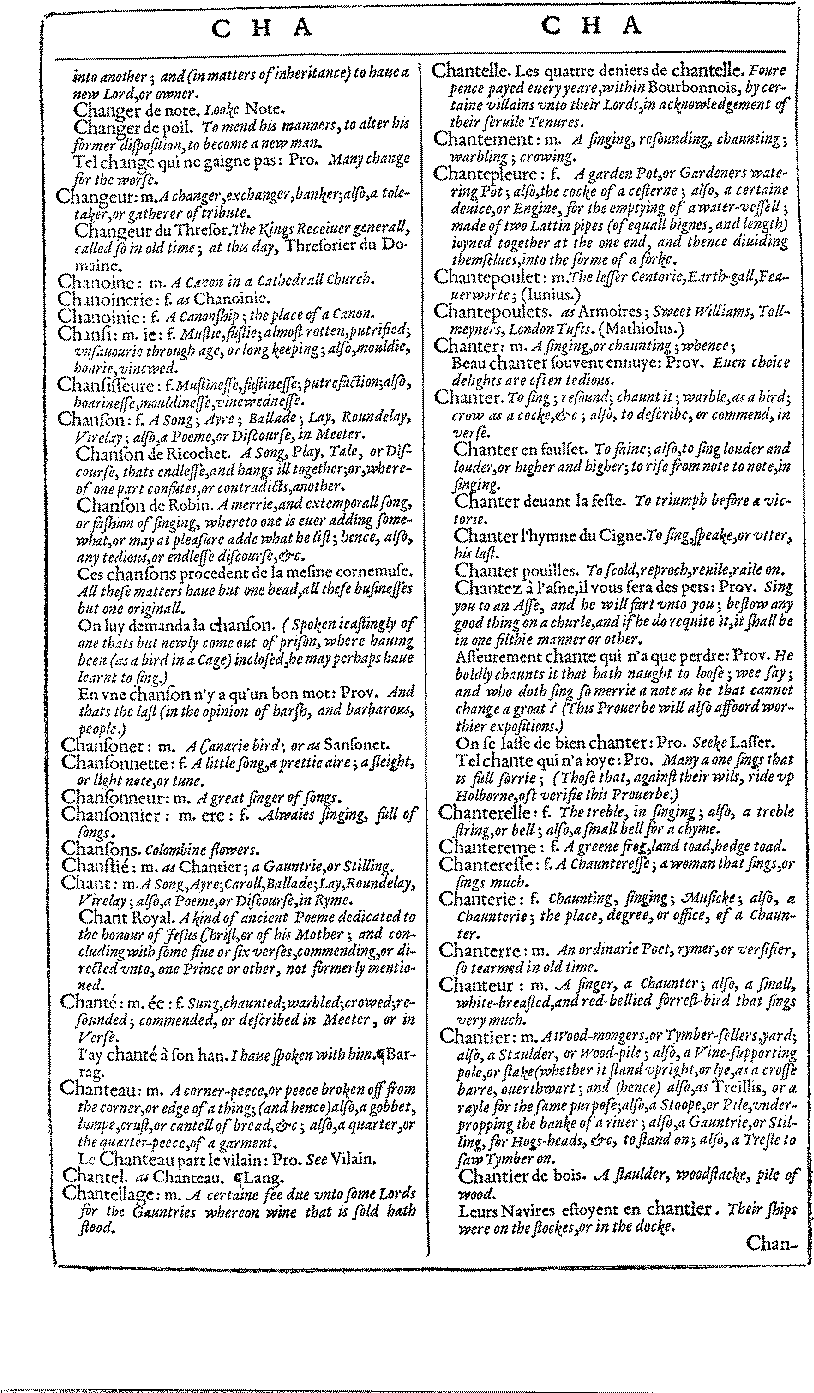 C H A
into another; and (in matters of inheritance) to haue a
new Lord, or owner.
Changer de note. Looke Note.
Changer de poil. To mend his manners, to alter his
former disposition, to become a new man.
Tel change qui ne gaigne pas: Pro. Many change
for the worse.
Changeur: m. A changer, exchanger, banker; also, a tole-
taker, or gatherer of tribute.
Changeur du Thresor. The Kings Receiuer generall,
called so in old time; at this day, Thresorier du Do-
maine.
Chanoine: m. A Canon in a Cathedrall Church.
Chanoinerie: f. as Chanoinie.
Chanoinie: f. A Canonship; the place of a Canon.
Chansi: m. ie: f. Mustie, fustie; almost rotten, putrified;
vnsauourie through age, or long keeping; also, mouldie,
hoarie, vinewed.
Chansisseure: f. Mustinesse, fustinesse; putrefaction; also,
hoarinesse, mouldinesse, vinewednesse.
Chanson: f. A Song; Ayre; Ballade; Lay, Roundelay,
Virelay; also, a Poeme, or Discourse, in Meeter.
Chanson de Ricochet. A Song, Play, Tale, or Dis-
course, thats endlesse, and hangs ill together; or, where-
of one part confutes, or contradicts, another.
Chanson de Robin. A merrie, and extemporall song,
or fashion of singing, whereto one is euer adding some-
what, or may at pleasure adde what he list; hence, also,
any tedious, or endlesse discourse, &c.
Ces chansons procedent de la mesme cornemuse.
All these matters haue but one head, all these businesses
but one originall.
On luy demanda la chanson. (Spoken ieastingly of
one thats but newly come out of prison, where hauing
been (as a bird in a Cage) inclosed, he may perhaps haue
learnt to sing.)
En vne chanson n'y a qu'vn bon mot: Prov. And
thats the last (in the opinion of harsh, and barbarous,
people.)
Chansonet: m. A Canarie bird; or as Sansonet.
Chansonnette: f. A little song, a prettie aire; a sleight,
or light note, or tune.
Chansonneur: m. A great singer of songs.
Chansonnier: m. ere: f. Alwaies singing, full of
songs.
Chansons. Colombine flowers.
Chanstié: m. as Chantier; a Gauntrie, or Stilling.
Chant: m. A Song, Ayre; Caroll, Ballade; Lay, Roundelay,
Virelay; also, a Poeme, or Discourse, in Ryme.
Chant Royal. A kind of ancient Poeme dedicated to
the honour of Jesus Christ, or of his Mother; and con-
cluding with some fiue or six verses, commending, or di-
rected vnto, one Prince or other, not formerly mentio-
ned.
Chanté: m. ée: f. Sung, chaunted; warbled; crowed; re-
sounded; commended, or described in Meeter, or in
Verse.
I'ay chanté à son han. I haue spoken with him. ¶Bar-
rag.
Chanteau: m. A corner-peece, or peece broken off from
the corner, or edge of a thing; (and hence) also, a gobbet,
lumpe, crust, or cantell of bread, &c; also, a quarter, or
the quarter-peece, of a garment.
Le Chanteau part le vilain: Pro. See Vilain.
Chantel. as Chanteau. ¶Lang.
Chantellage: m. A certaine fee due vnto some Lords
for the Gauntries whereon wine that is sold hath
stood.
C H A
Chantelle. Les quattre deniers de chantelle. Foure
pence payed euery yeare, within Bourbonnois, by cer-
taine villains vnto their Lords, in acknowledgement of
their seruile Tenures.
Chantement: m. A singing, resounding, chaunting;
warbling; crowing.
Chantepleure: f. A garden Pot, or Gardeners wate-
ring Pot; also, the cocke of a cesterne; also, a certaine
deuice, or Engine, for the emptying of a water-vessell;
made of two Lattin pipes (of equall bignes, and length)
ioyned together at the one end, and thence diuiding
themselues, into the forme of a forke.
Chantepoulet: m. The lesser Centorie, Earth-gall, Fea-
uerworte; (Iunius.)
Chantepoulets. as Armoires; Sweet Williams, Toll-
meyners, London Tufts. (Mathiolus.)
Chanter: m. A singing, or chaunting; whence;
Beau chanter souvent ennuye: Pro. Euen choice
delights are often tedious.
Chanter. To sing; resound; chaunt it; warble, as a bird;
crow as a cocke, &c; also, to describe, or commend, in
verse.
Chanter en faulset. To faine; also, to sing louder and
louder, or higher and higher; to rise from note to note, in
singing.
Chanter deuant la feste. To triumph before a vic-
torie.
Chanter l'hymne du Cigne. To sing, speake, or vtter,
his last.
Chanter pouilles. To scold, reproch, reuile, raile on.
Chantez à l'asne, il vous fera des pets: Prov. Sing
you to an Asse, and he will fart vnto you; bestow any
good thing on a churle, and if he do requite it, it shall be
in one filthie manner or other.
Asseurement chante qui n'a que perdre: Prov. He
boldly chaunts it that hath naught to loose; wee say;
and who doth sing so merrie a note as he that cannot
change a groat? (This Prouerbe will also affoord wor-
thier expositions.)
On se lasse de bien chanter: Pro. Seeke Lasser.
Tel chante qui n'a ioye: Pro. Many a one sings that
is full sorrie; (Those that, against their wils, ride vp
Holborne, oft verifie this Prouerbe.)
Chanterelle: f. The treble, in singing; also, a treble
string, or bell; also, a small bell for a chyme.
Chantereme: f. A greene frog, land toad, hedge toad.
Chanteresse: f. A Chaunteresse; a woman that sings, or
sings much.
Chanterie: f. Chaunting, singing; Musicke; also, a
Chaunterie; the place, degree, or office, of a Chaun-
ter.
Chanterre: m. An ordinarie Poet, rymer, or versifier,
so tearmed in old time.
Chanteur: m. A singer, a Chaunter; also, a small,
white-breasted, and red-bellied forrest-bird that sings
very much.
Chantier: m. A Wood-mongers, or Tymber-sellers, yard;
also, a Staulder, or Wood-pile; also, a Vine-supporting
pole, or stake (whether it stand vpright, or lye, as a crosse
barre, ouerthwart; and (hence) also, as Treillis, or a
rayle for the same purpose; also, a Stoope, or Pile, vnder-
propping the banke of a riuer; also, a Gauntrie, or Stil-
ling, for Hogs-heads, &c, to stand on; also, a Trestle to
saw Tymber on.
Chantier de bois. A staulder, woodstacke, pile of
wood.
Leurs Navires estoyent en chantier. Their ships
were on the stockes, or in the docke.
Chan-